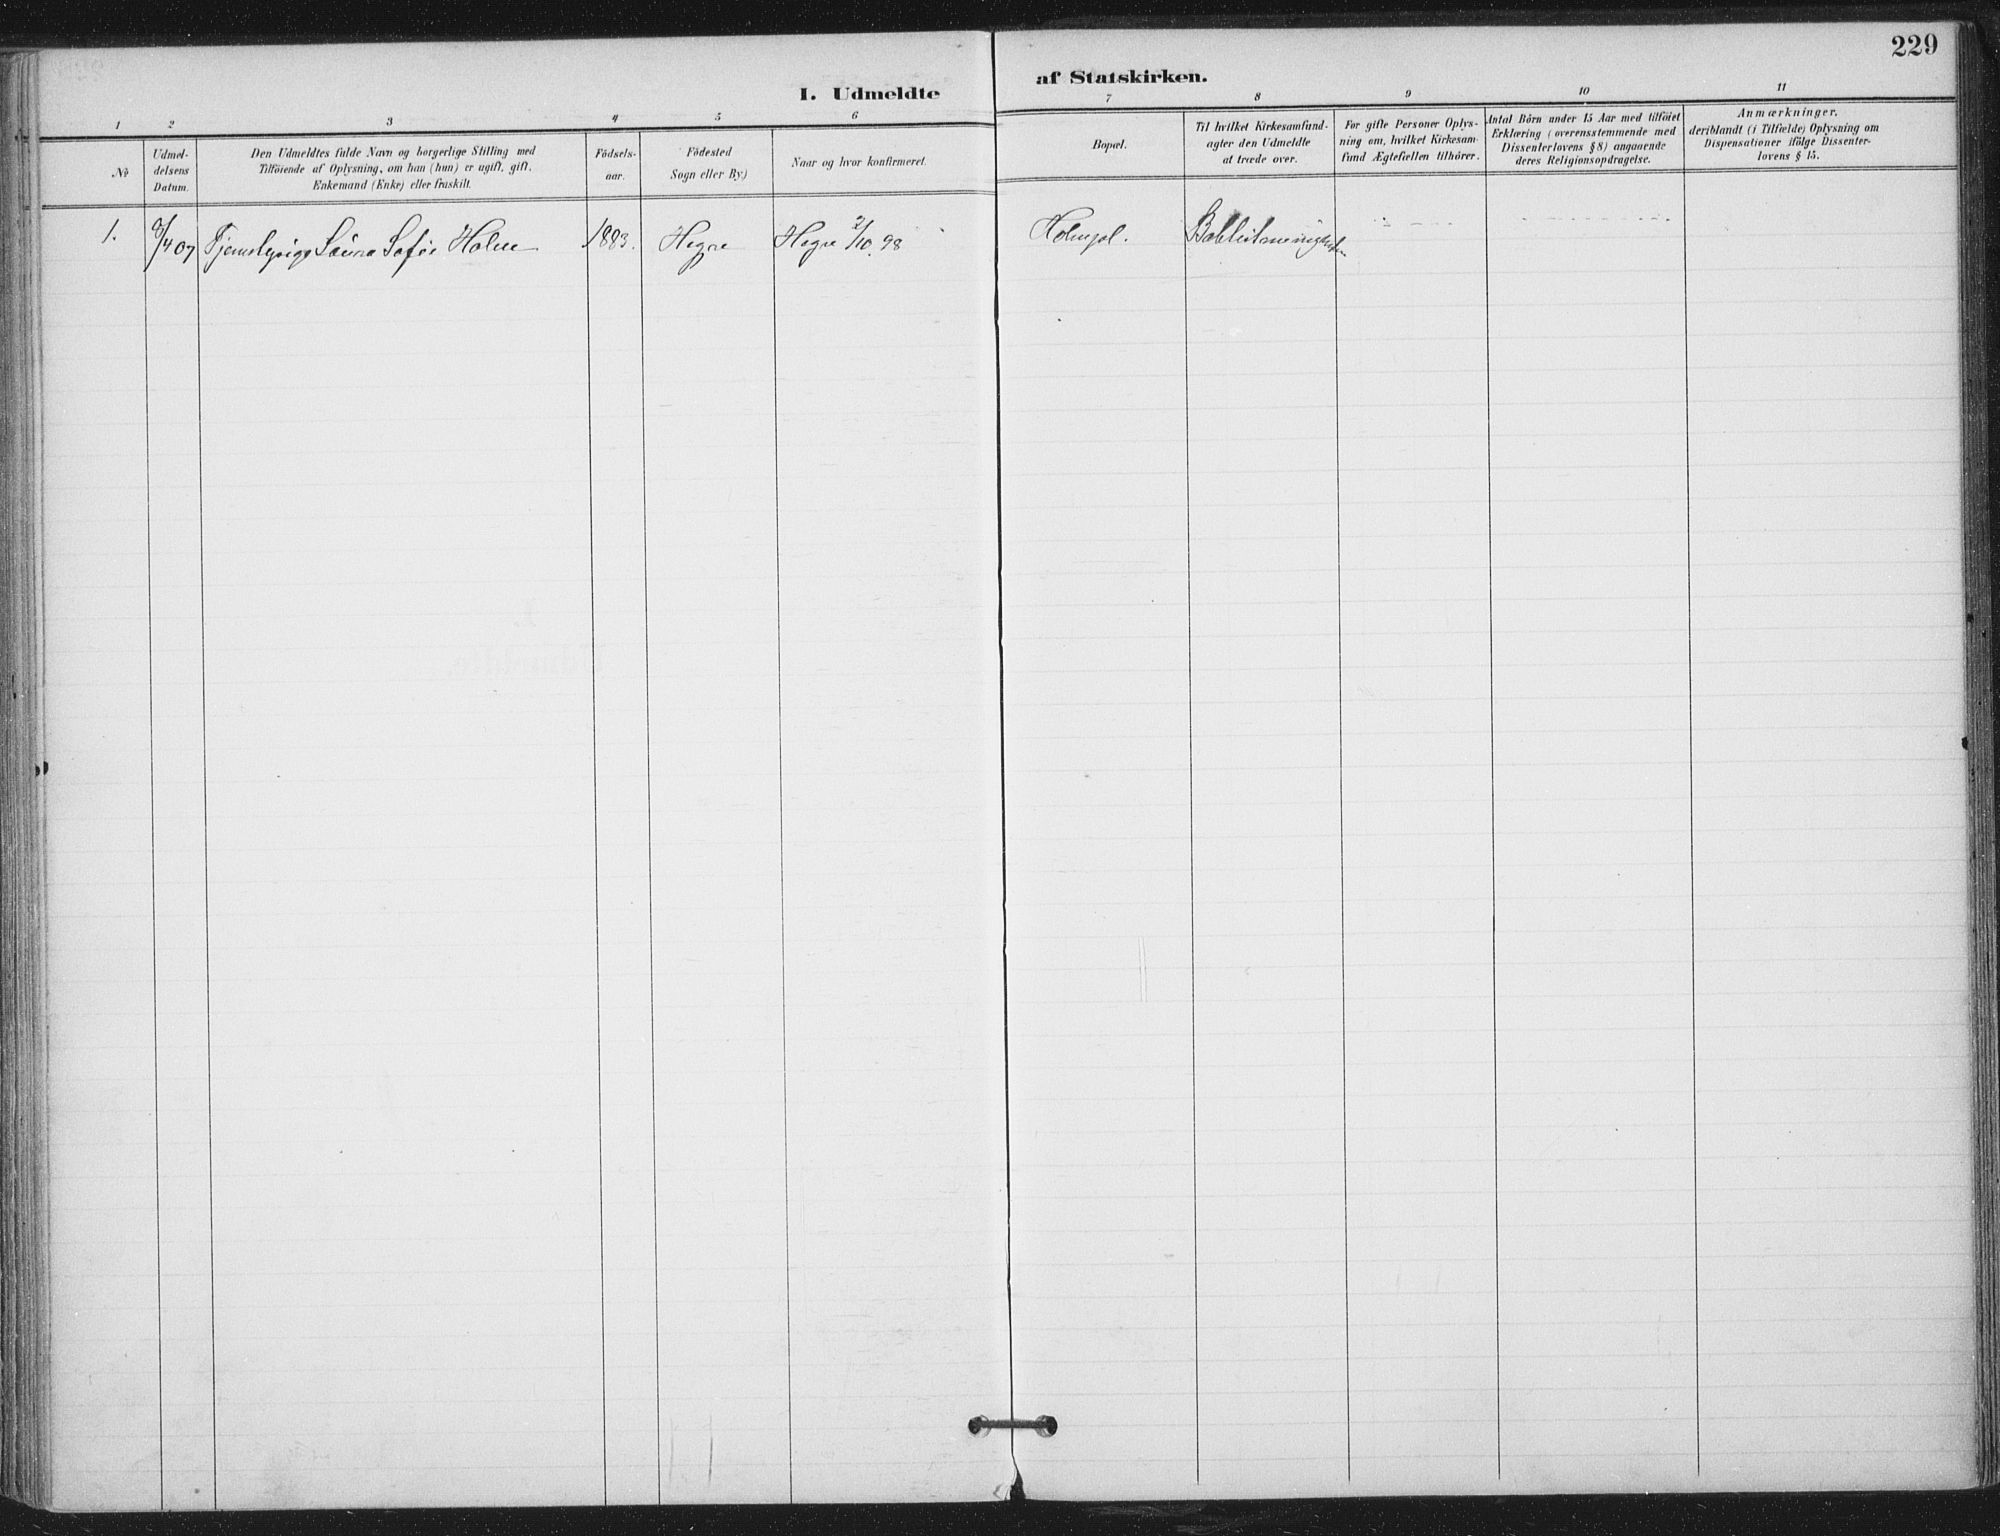 229
I. Udmeldte af Statskirken.
1 2 3 4 5 6 7 8 9 10 11
No
Udmel-
delsens
Datum.
Den Udmeldtes fulde Navn og borgerlige Stilling med
Tilföiende af Oplysning, om han (hun) er ugift, gift,
Enkemand (Enke) eller fraskilt.
Födsels-
aar.
Födested
Sogn eller By)
Naar og hvor konfirmeret.
Bopæl.
Til hvilket Kirkesamfund-
agter den Udmeldte
at træde over.
For gifte Personer Oplys-
ning om, hvilket Kirkesam-
fund Ægtefællen tilhörer.
Antal Börn under 15 Aar med tilföiet
Erklæring (overensstemmende med
Dissenterlovens § 8) angaaende
deres Religionsopdragelse.
Anmærkninger,
deriblandt (i Tilfælde) Oplysning om
Dispensationer ifölge Dissenter-
lovens § 15.
1. 8/4 07 Holm 1883. Hegre Hegre 2/10 98